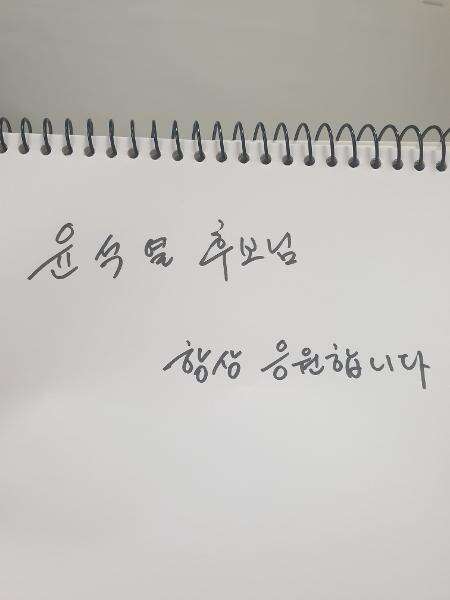 윤석열 후보님
항상 응원합니다